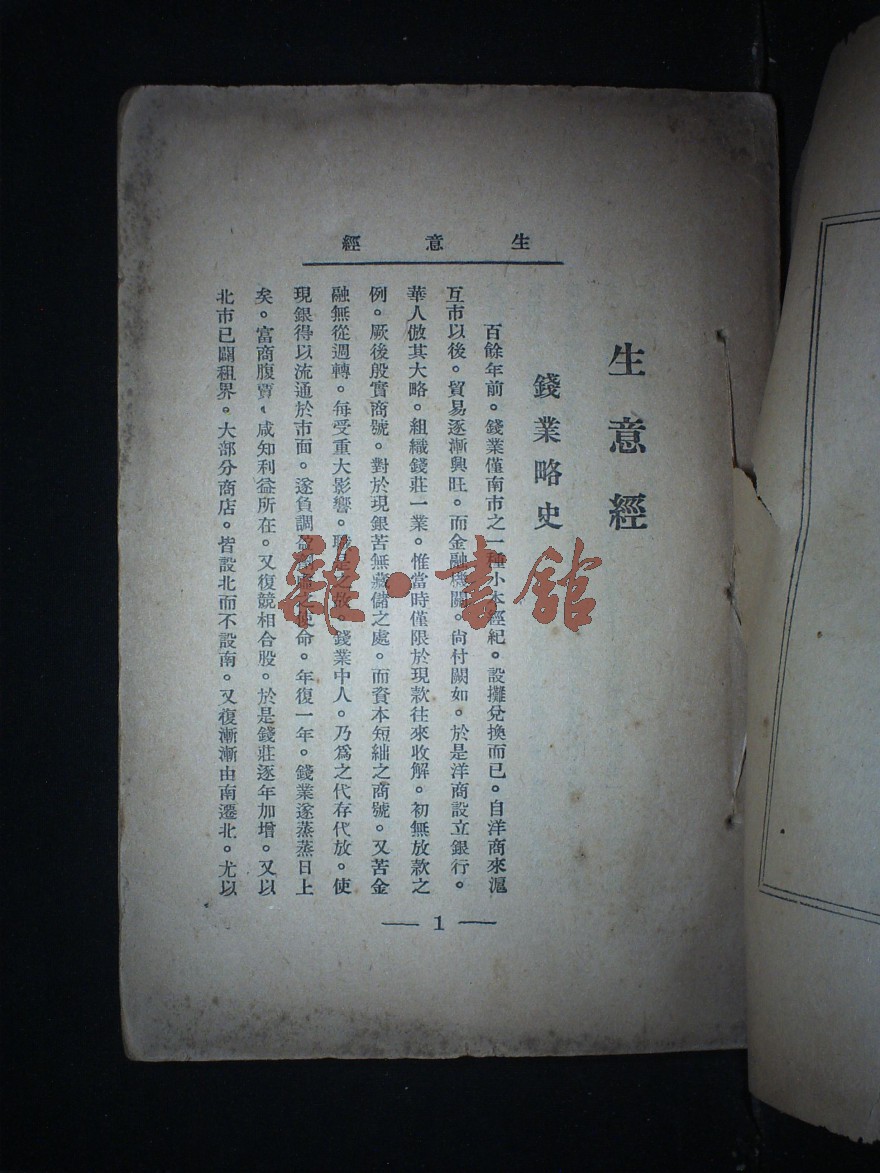 生意經
生意經
錢業略史
百餘年前。錢業僅南市之一種小本經紀。設攤兌換而已。自洋商來滬
互市以後。貿易逐漸興旺。而金融機關。尙付闕如。於是洋商設立銀行。
華人倣其大略。組織錢莊一業。惟當時僅限於現款往來收解。初無放款之
例。厥後殷實商號。對於現銀苦無藏儲之處。而資本短絀之商號。又苦金
融無從週轉。每受重大影響。職是之故。錢業中人。乃爲之代存代放。使
現銀得以流通於市面。遂負調盈劑虛之使命。年復一年。錢業遂蒸蒸日上
矣。富商腹賈。咸知利益所在。又復競相合股。於是錢莊逐年加增。又以
北市已闢租界。大部分商店。皆設北而不設南。又復漸漸由南遷北。尤以
— 1 —
雜·書館